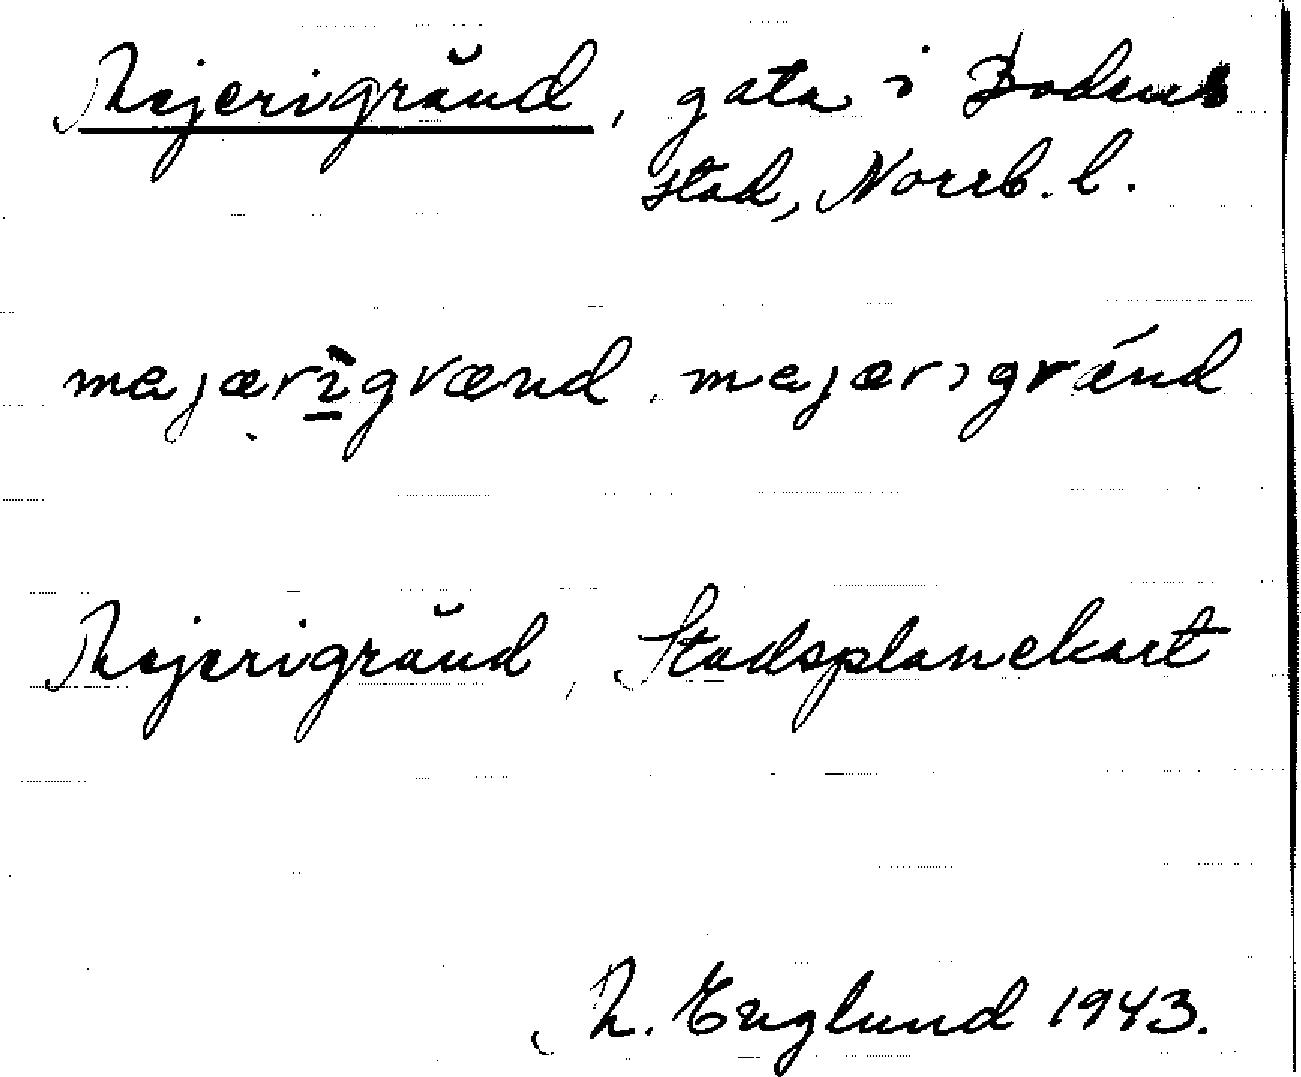 Mejerigränd, gata i Bodens
stad, Norrb. l.
mejærìgrænd, mejærigrǽnd
Mejerigränd, Stadsplanekart
M. Englund 1943.